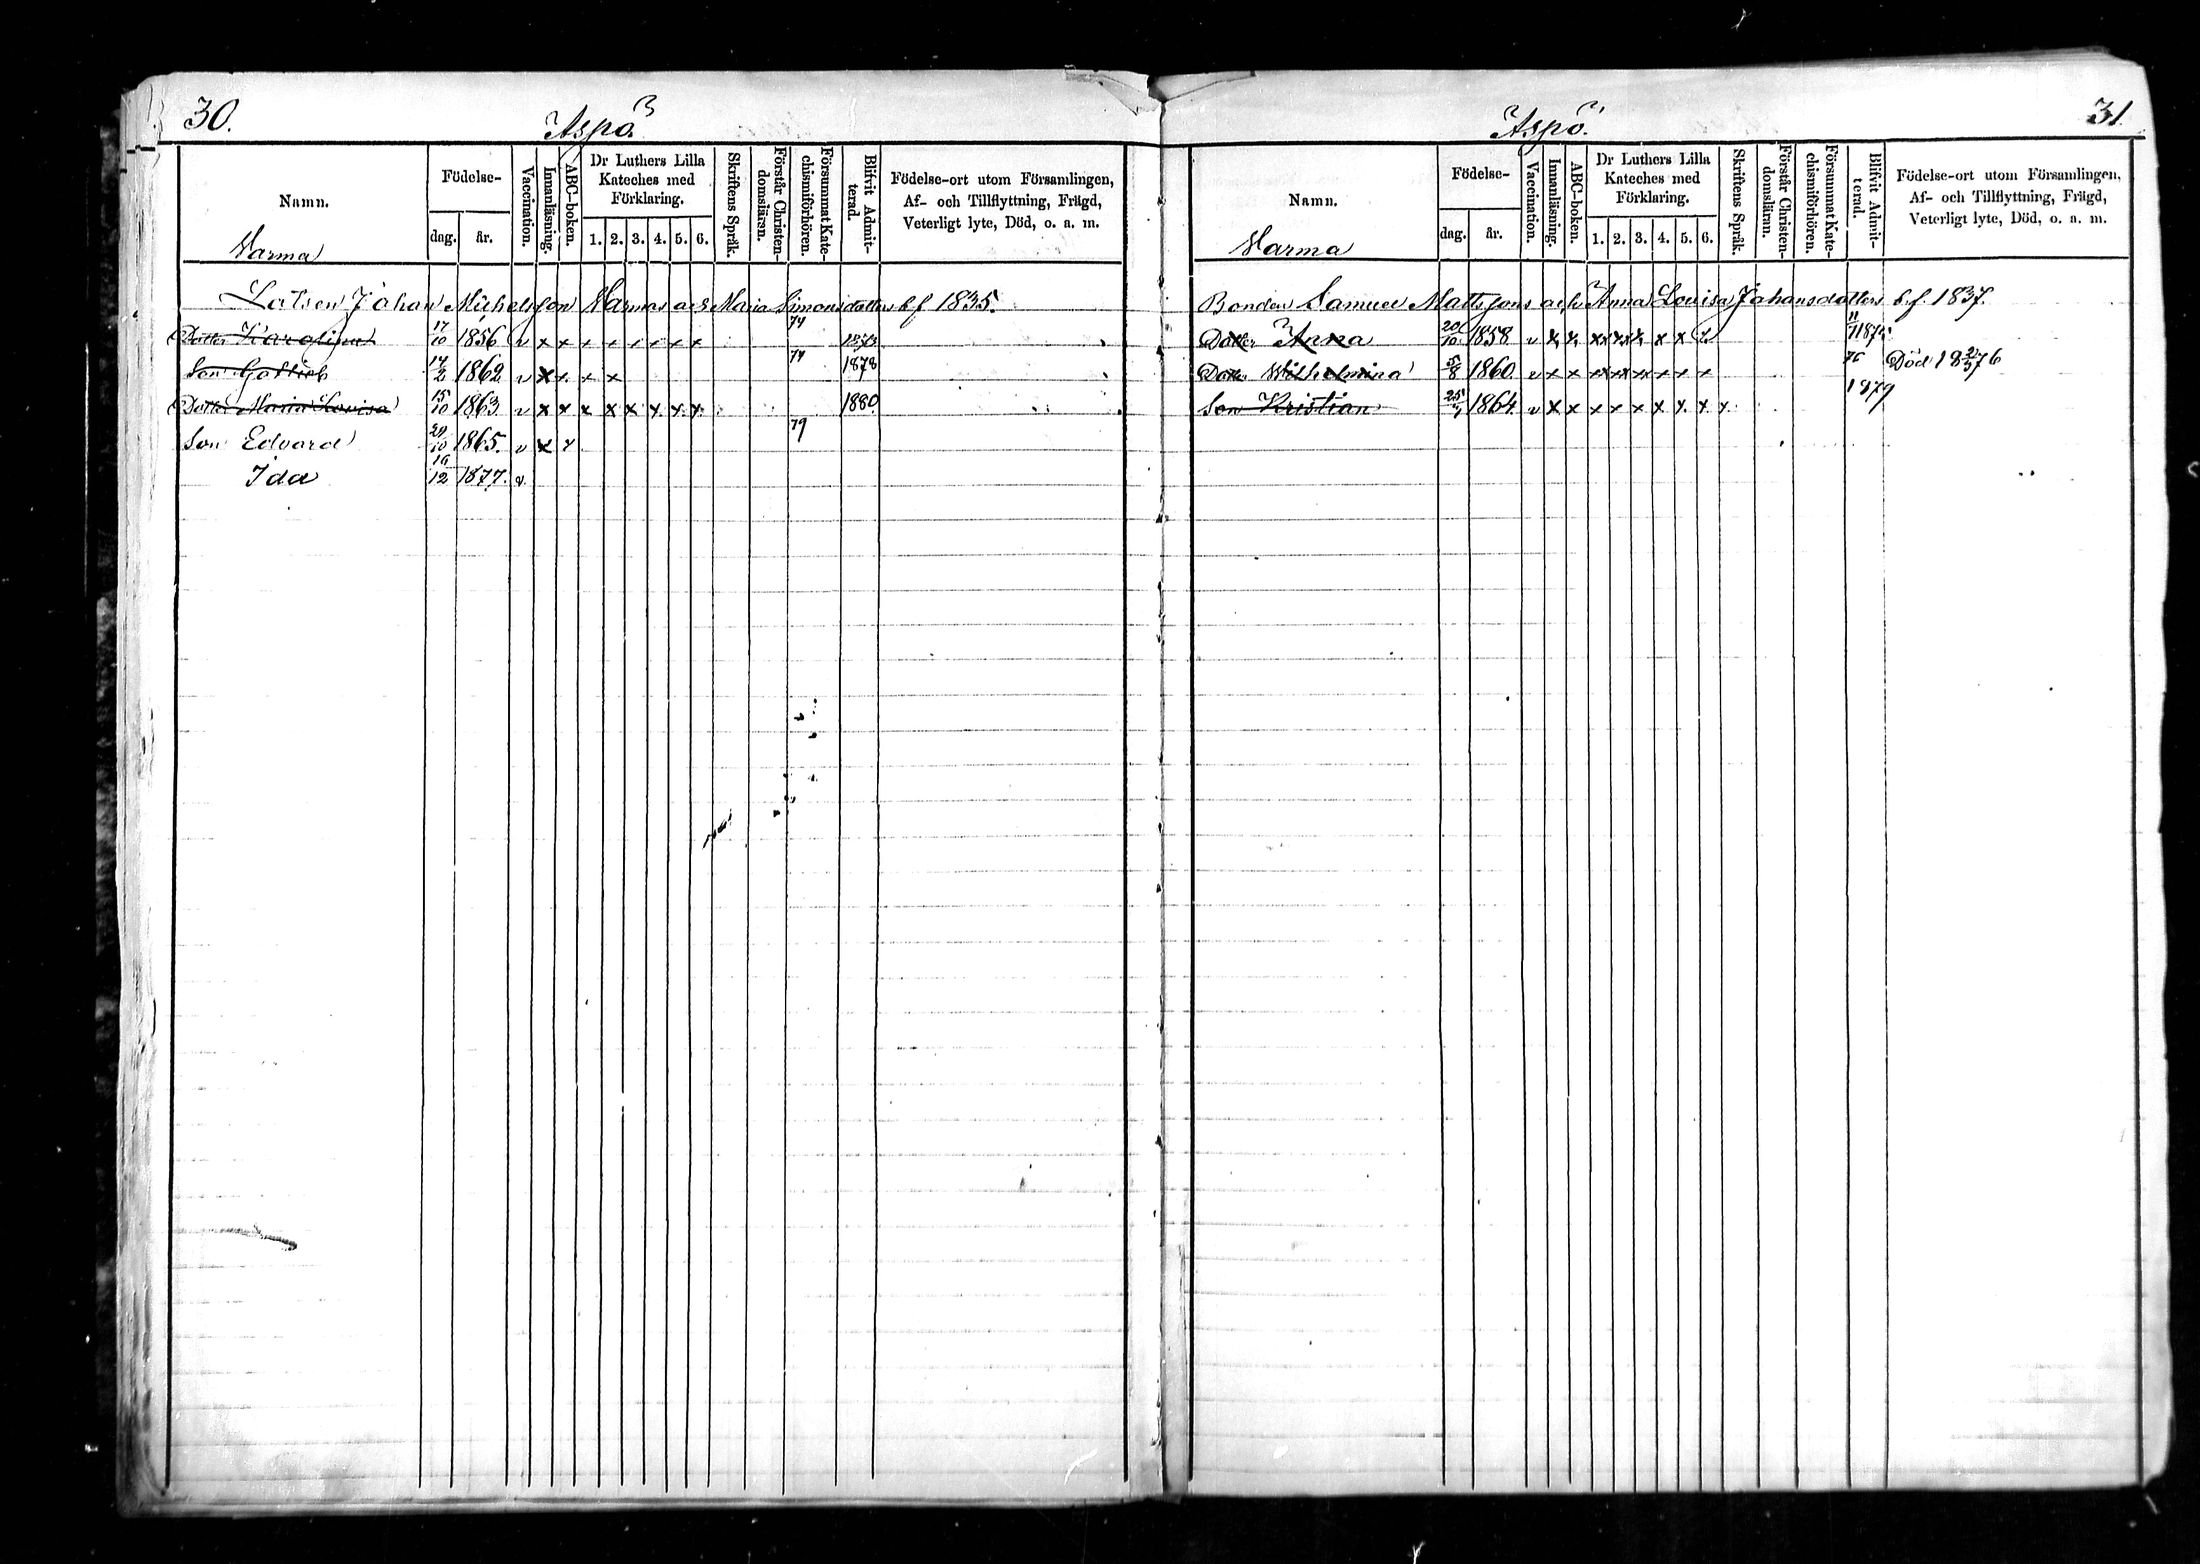 30.
Aspö.
Namn.
Födelse-
dag.
år.
Vaccination.
Innanläsning.
ABC-boken.
Dr Luthers Lilla
Kateches med
Förklaring.
1. 2. 3. 4. 5. 6.
Skriftens Språk.
Förstår Christen-
domsläran.
Försummat Kate-
chismiförhören.
Blifvit Admit-
terad.
Födelse-ort utom Församlingen,
Af- och Tillflyttning, Frägd,
Veterligt lyte, Död, o. a. m.
Varma
Johan Michelsson Varmas Maria Simonsdotters b f 1835.
Dotter Karolina 17/10 1856 v x x x x x x x x 74 1873
Son Gotlieb 17/2 1862 v x x x x 77 1878
Dotter Maria Lovisa 15/10 1863 v x x x x x x x x 1880
Son Edvard 29/10 1865. v x x 79
Ida 16/12 1877. v
31
Aspö.
Namn.
Födelse-
dag.
år.
Vaccination.
Innanläsning.
ABC-boken.
Dr Luthers Lilla
Kateches med
Förklaring.
1. 2. 3. 4. 5. 6.
Skriftens Språk.
Förstår Christen-
domsläran.
Försummat Kate-
chismiförhören.
Blifvit Admit-
terad.
Födelse-ort utom Församlingen,
Af- och Tillflyttning, Frägd,
Veterligt lyte, Död, o. a. m.
Varma
Bonden Samuel Mattssons Anna Lovisa Johansdotters b. f. 1837.
Dotter Anna 20/10 1858 v x x x x x x x x
Dotter Wilhelmina 5/8 1860 v x x x x x x x x 76 Död 18 2/3 76
Son Kristian 25/4 1864 v x x x x x x x x x 1879